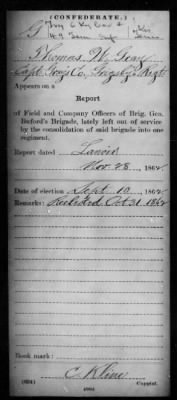 (CONFEDERATE.)
G
49 Tenn
Thomas W. Gray
Capt. Co.,
Appears on a
Report
of Field and Company Officers of Brig. Gen.
Buford's Brigade, lately left out of service
by the consolidation of said brigade into one
regiment.
Report dated
Nov. 28, 1862
Date of election Sept 10, 1862
Remarks: Oct 31 1862
Book mark:
C. Kline
(634)
Copyist.